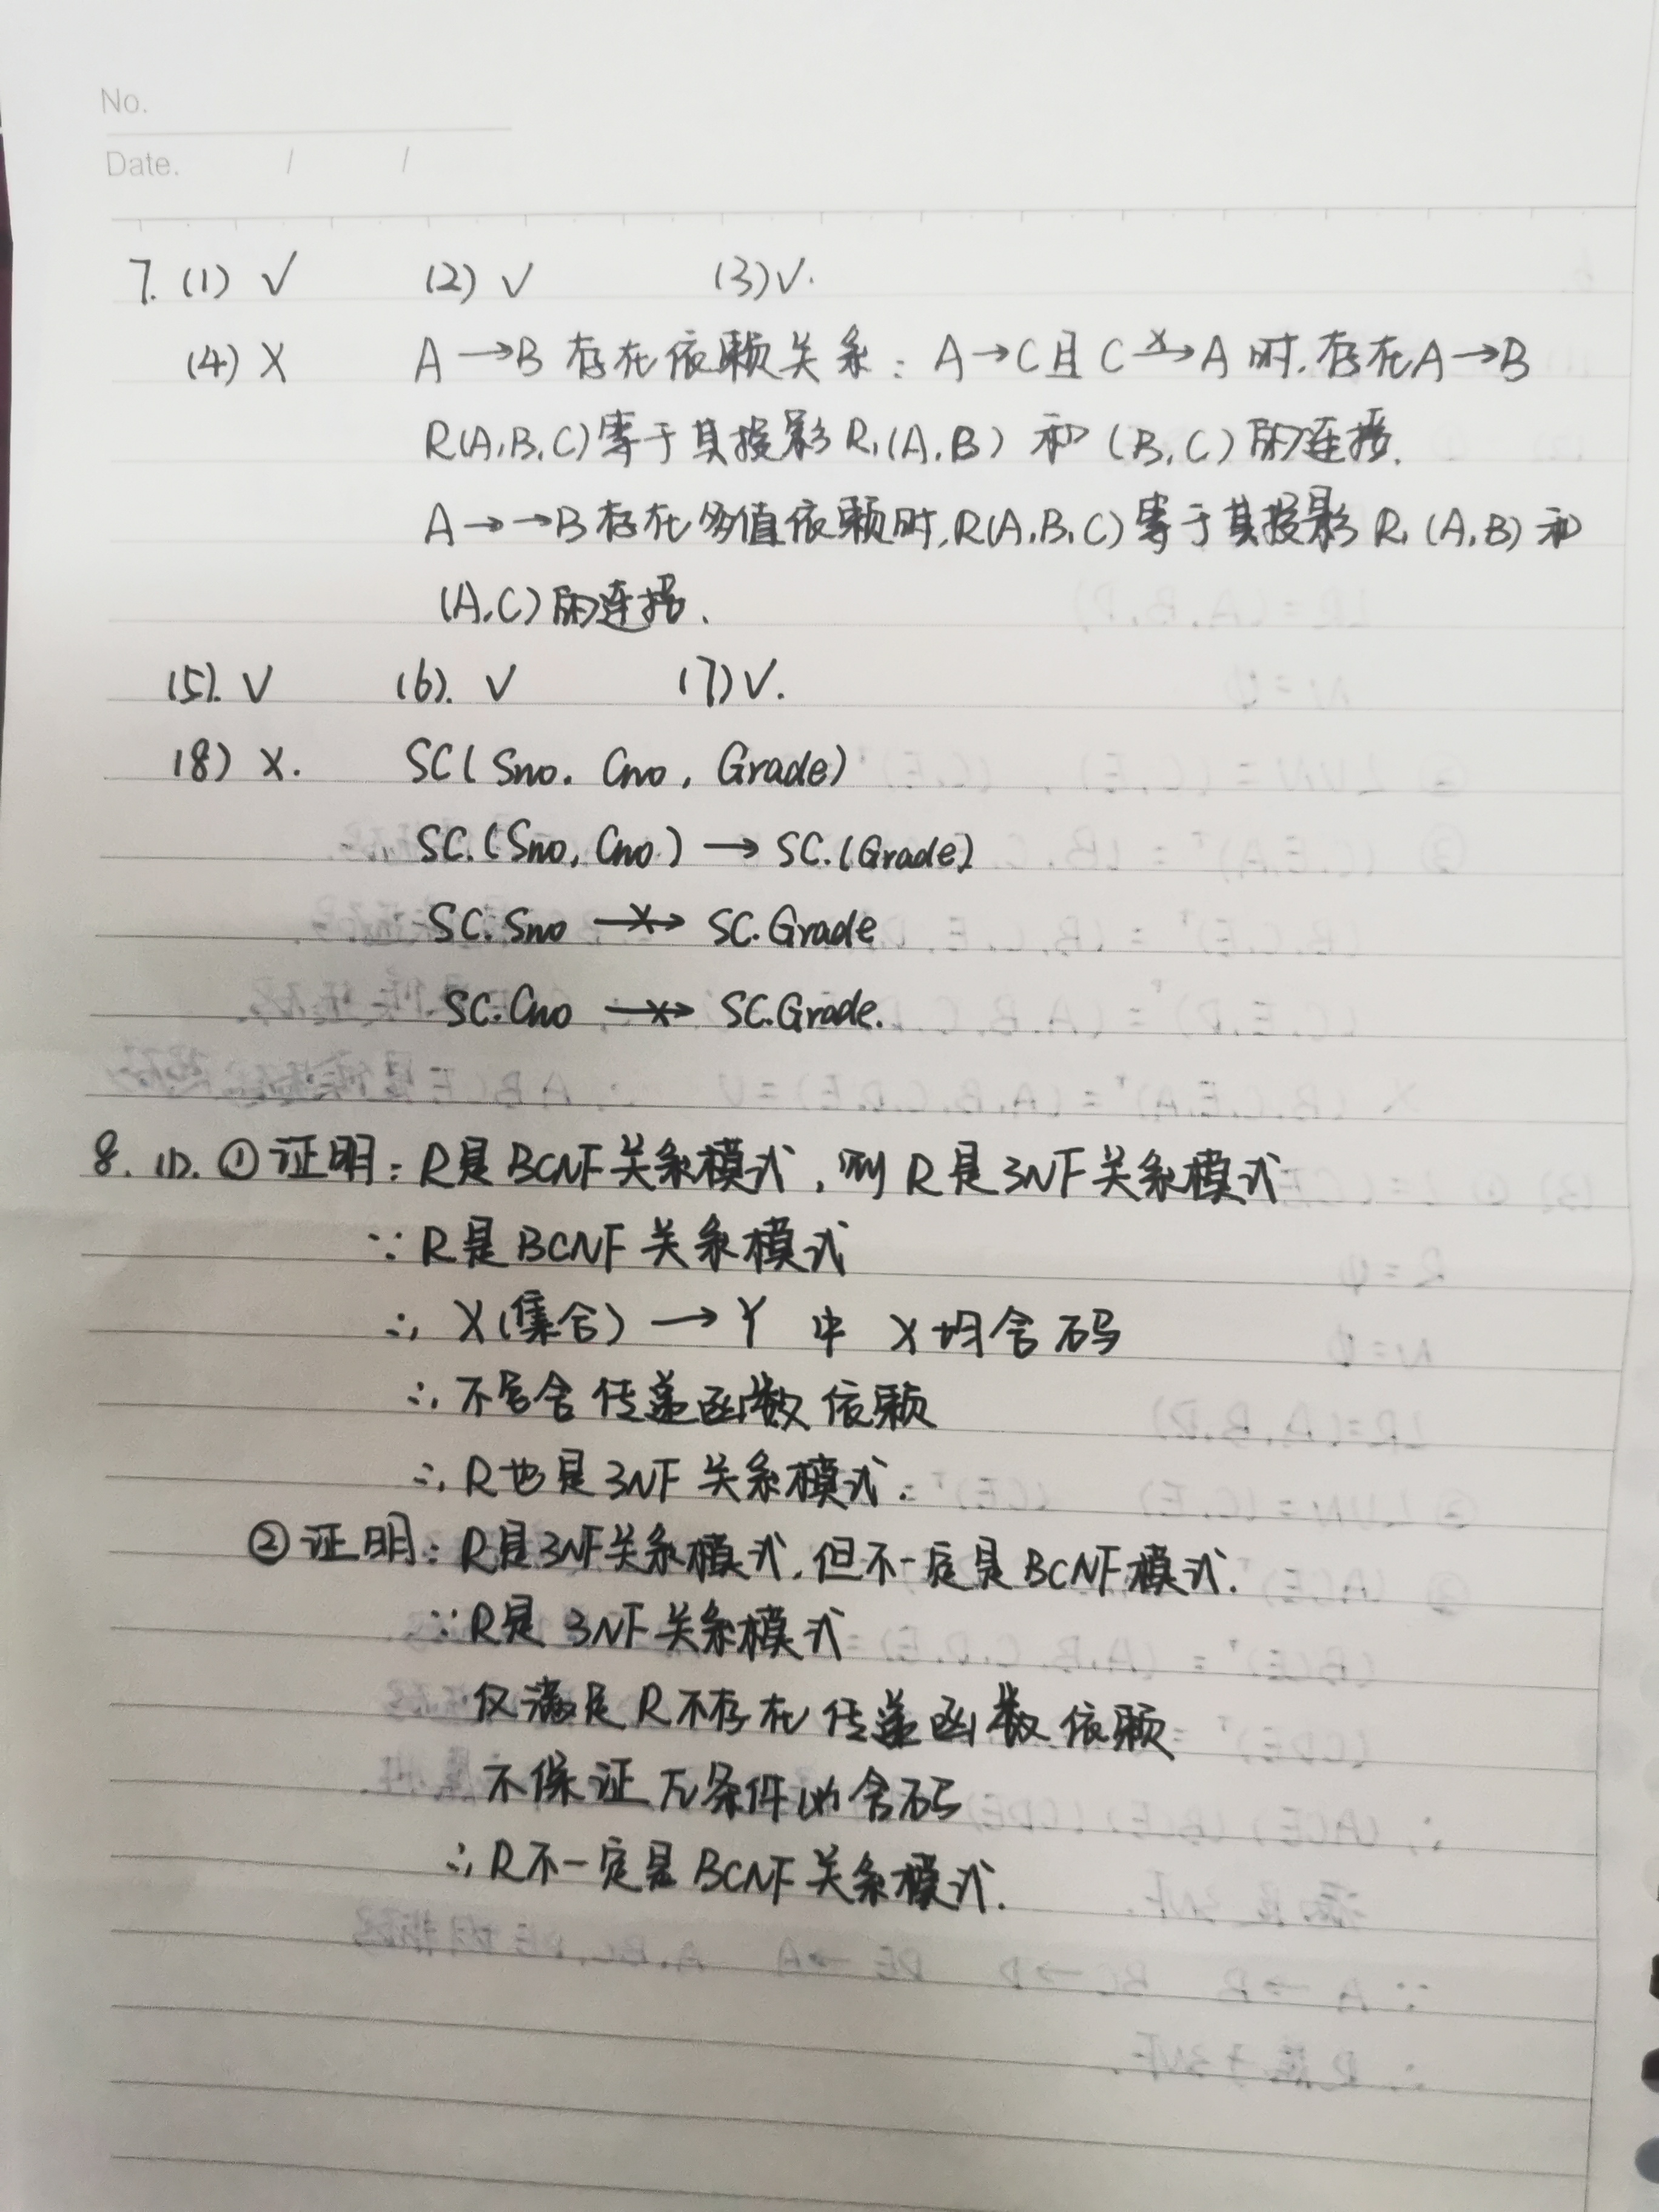 No.
Date. / /
7. (1) √ (2) √ (3) √.
(4) X A→B 存在依赖关系: A→C且C↛A时.存在A→B
R(A,B,C)等于其投影R₁(A,B) 和 (B,C)的连接.
A→→B存在多值依赖时,R(A,B,C)等于其投影R₁(A,B)和
(A,C)的连接.
(5). √ (6). √ (7) √.
(8) X. SC(Sno, Cno, Grade)
SC.(Sno, Cno) → SC.(Grade)
SC.Sno ↛ SC.Grade
SC.Cno ↛ SC.Grade.
8. (1). ① 证明: R是BCNF关系模式, 则R是3NF关系模式
∵ R是BCNF关系模式
∴ X(集合) → Y 中 X均含码
∴ 不包含传递函数依赖
∴ R也是3NF关系模式.
② 证明: R是3NF关系模式,但不一定是BCNF模式.
∵ R是3NF关系模式
仅满足R不存在传递函数依赖
不保证 条件 含码
∴ R不一定是BCNF关系模式.